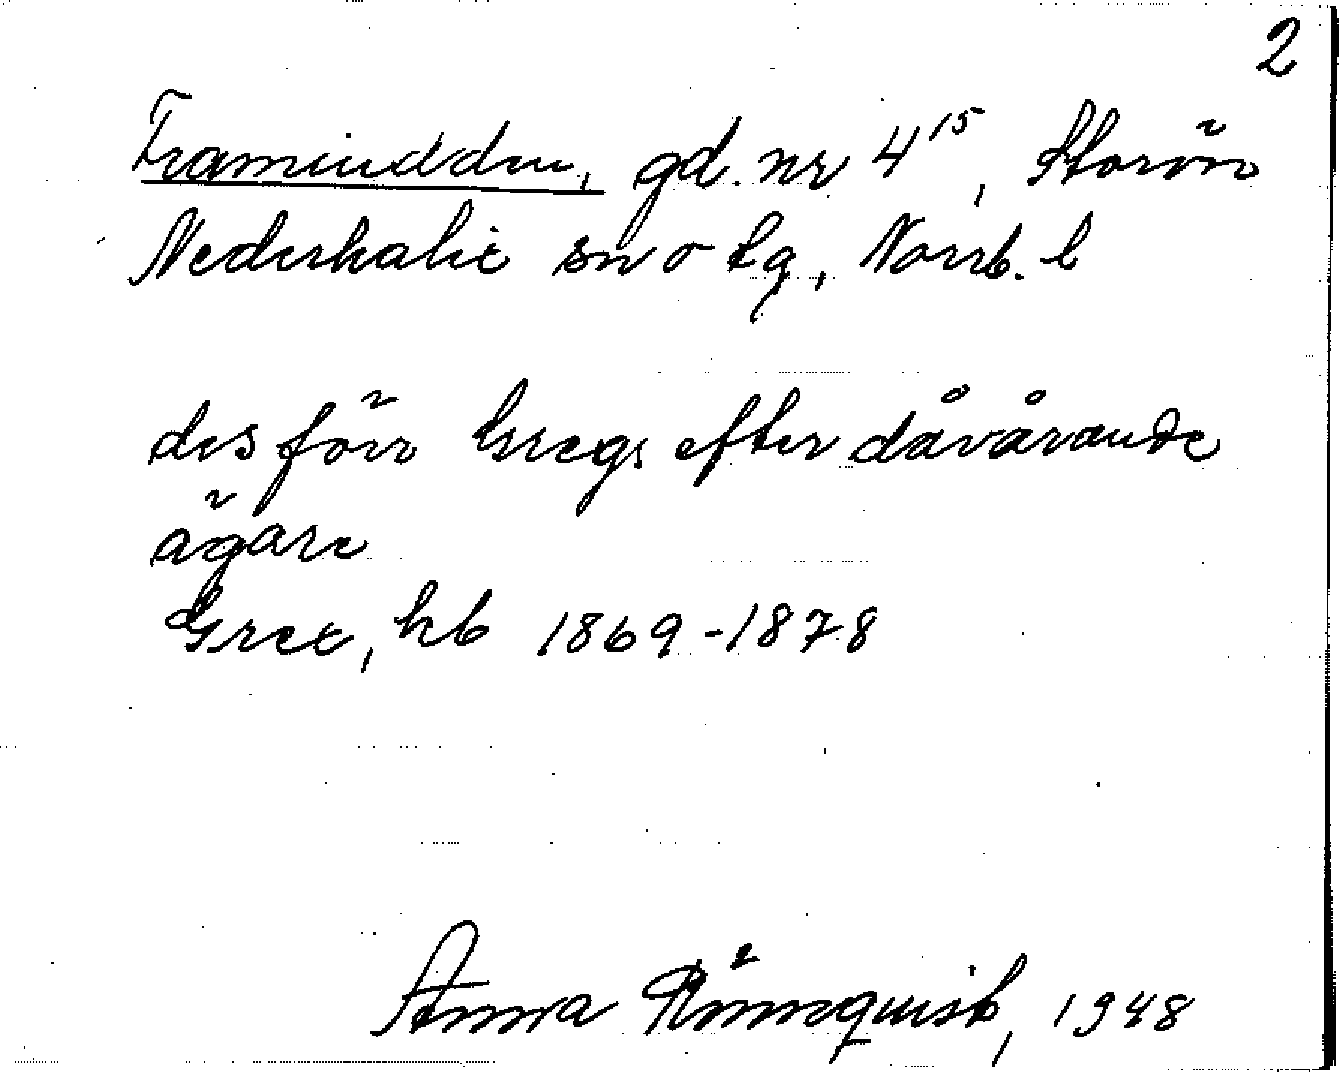 2
Framudden, gd. nr 4¹⁵, Storön
Nederkalix sn o tg, Norrb. l
des förr Gregs efter dåvarande
ägare
Gret, hb 1869-1878
Anna Rönnquist, 1948